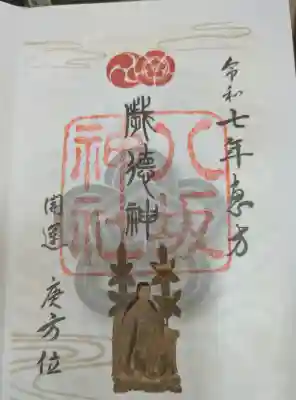 令和七年恵方
歳徳神
八坂神社
開運 庚方位